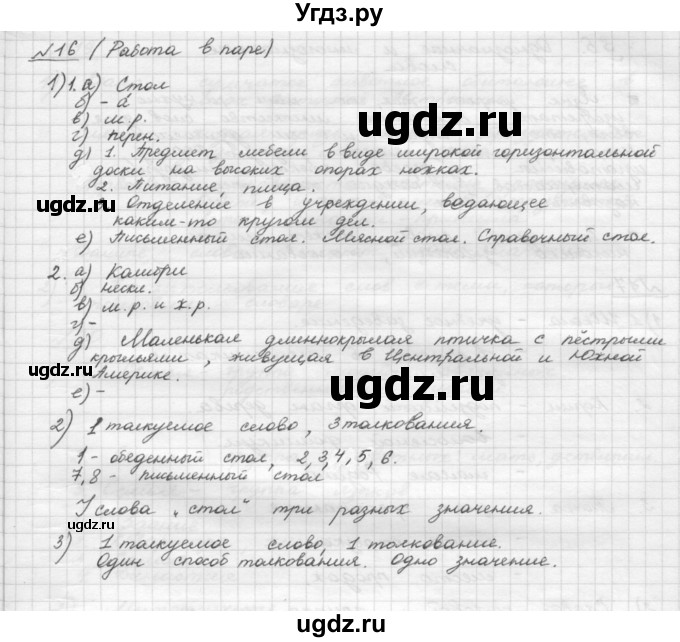 Угдз.ру
№16 (Работа в паре)
1) 1. а) Стол
б) - á
в) м.р.
г) перен.
д) 1. Предмет мебели в виде широкой горизонтальной
доски на высоких опорах ножках.
2. Питание, пища.
3. Отделение в учреждении, ведающее
каким-то кругом дел.
е) Письменный стол. Мясной стол. Справочный стол.
2. а) Колибри
б) нескл.
в) м.р. и ж.р.
г) -
д) Маленькая длиннокрылая птичка с пёстрыми
крыльями, живущая в Центральной и Южной
Америке.
е) -
2) 1 толкуемое слово, 3 толкования.
1 - обеденный стол, 2,3,4,5,6.
7,8 - письменный стол,
У слова "стол" три разных значения.
3) 1 толкуемое слово, 1 толкование.
Один способ толкования. Одно значение.
ugdz.ru
ugdz.ru
ugdz.ru
ugdz.ru
ugdz.ru
ugdz.ru
ugdz.ru
ugdz.ru
ugdz.ru